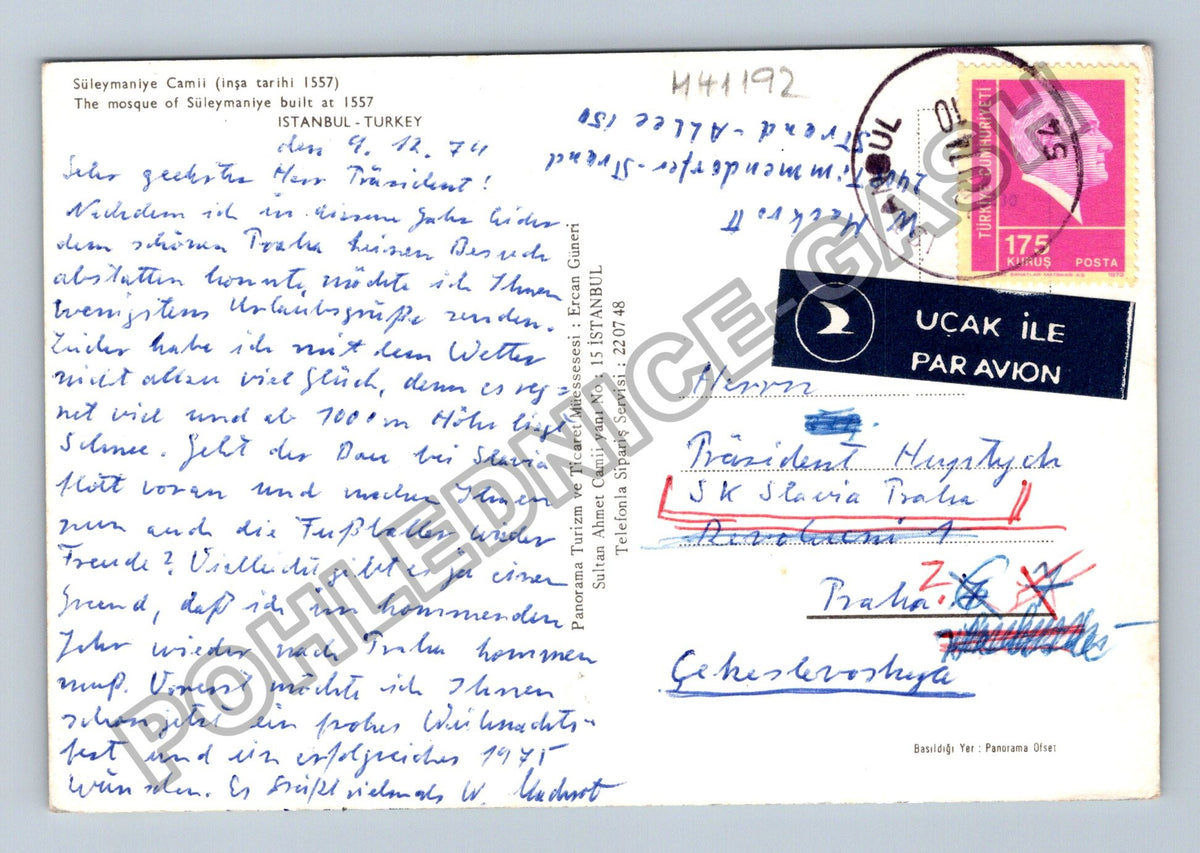 Süleymaniye Camii (inşa tarihi 1557)
The mosque of Süleymaniye built at 1557
ISTANBUL - TURKEY
den 9. 12. 74
Sehr geehrter Herr Präsident!
Nachdem ich in diesem Jahr leider
dem schönen Praha keinen Besuch
abstatten konnte, möchte ich Ihnen
wenigstens Urlaubsgrüße senden.
Leider habe ich mit dem Wetter
nicht allzu viel Glück, denn es reg=
net viel und ab 1000 m Höhe liegt
Schnee. Geht der Bau bei Slavia
flott voran und machen Ihnen
nun auch die Fußballer wieder
Freude? Vielleicht gibt es ja einen
Grund, daß ich im kommenden
Jahr wieder nach Praha kommen
muß. Vorerst möchte ich Ihnen
schon jetzt ein frohes Weihnachts-
fest und ein erfolgreiches 1975
wünschen. Es grüßt vielmals W.
Panorama Turizm ve Ticaret Müessesesi : Ercan Güneri
Sultan Ahmet Camii yanı No : 15 İSTANBUL
Telefonla Sipariş Servisi : 22 07 48
M41192
W.
Timmendorfer-Strand
Strand-Allee 150
İSTANBUL
10
74
TÜRKİYE CUMHURİYETİ
175
KURUŞ POSTA
1972
UÇAK İLE
PAR AVION
Herrn
Präsident Huptych
SK Slavia Praha
Revoluční 1
Praha
Çekeslovoskya
Basıldığı Yer : Panorama Ofset
POHLEDNICE-GASH